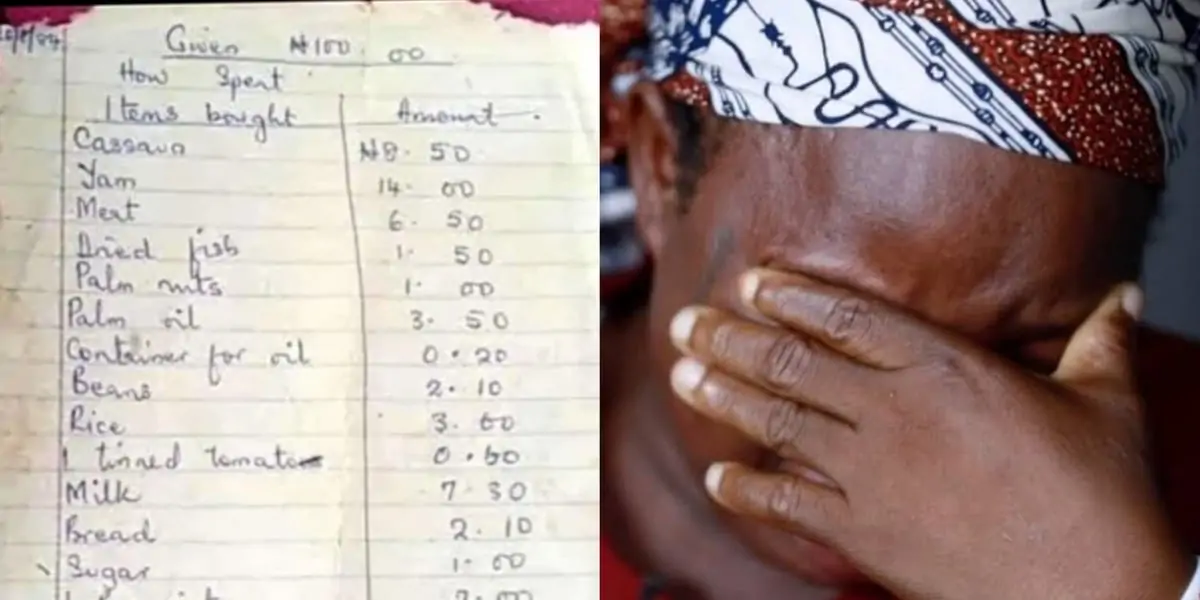 Given ₦100.00
How Spent
Items bought Amount.
Cassava ₦8.50
Yam 14.00
Meat 6.50
Dried fish 1.50
Palm nuts 1.00
Palm oil 3.50
Container for oil 0.20
Beans 2.10
Rice 3.00
1 tinned tomato 0.60
Milk 7.30
Bread 2.10
Sugar 1.00